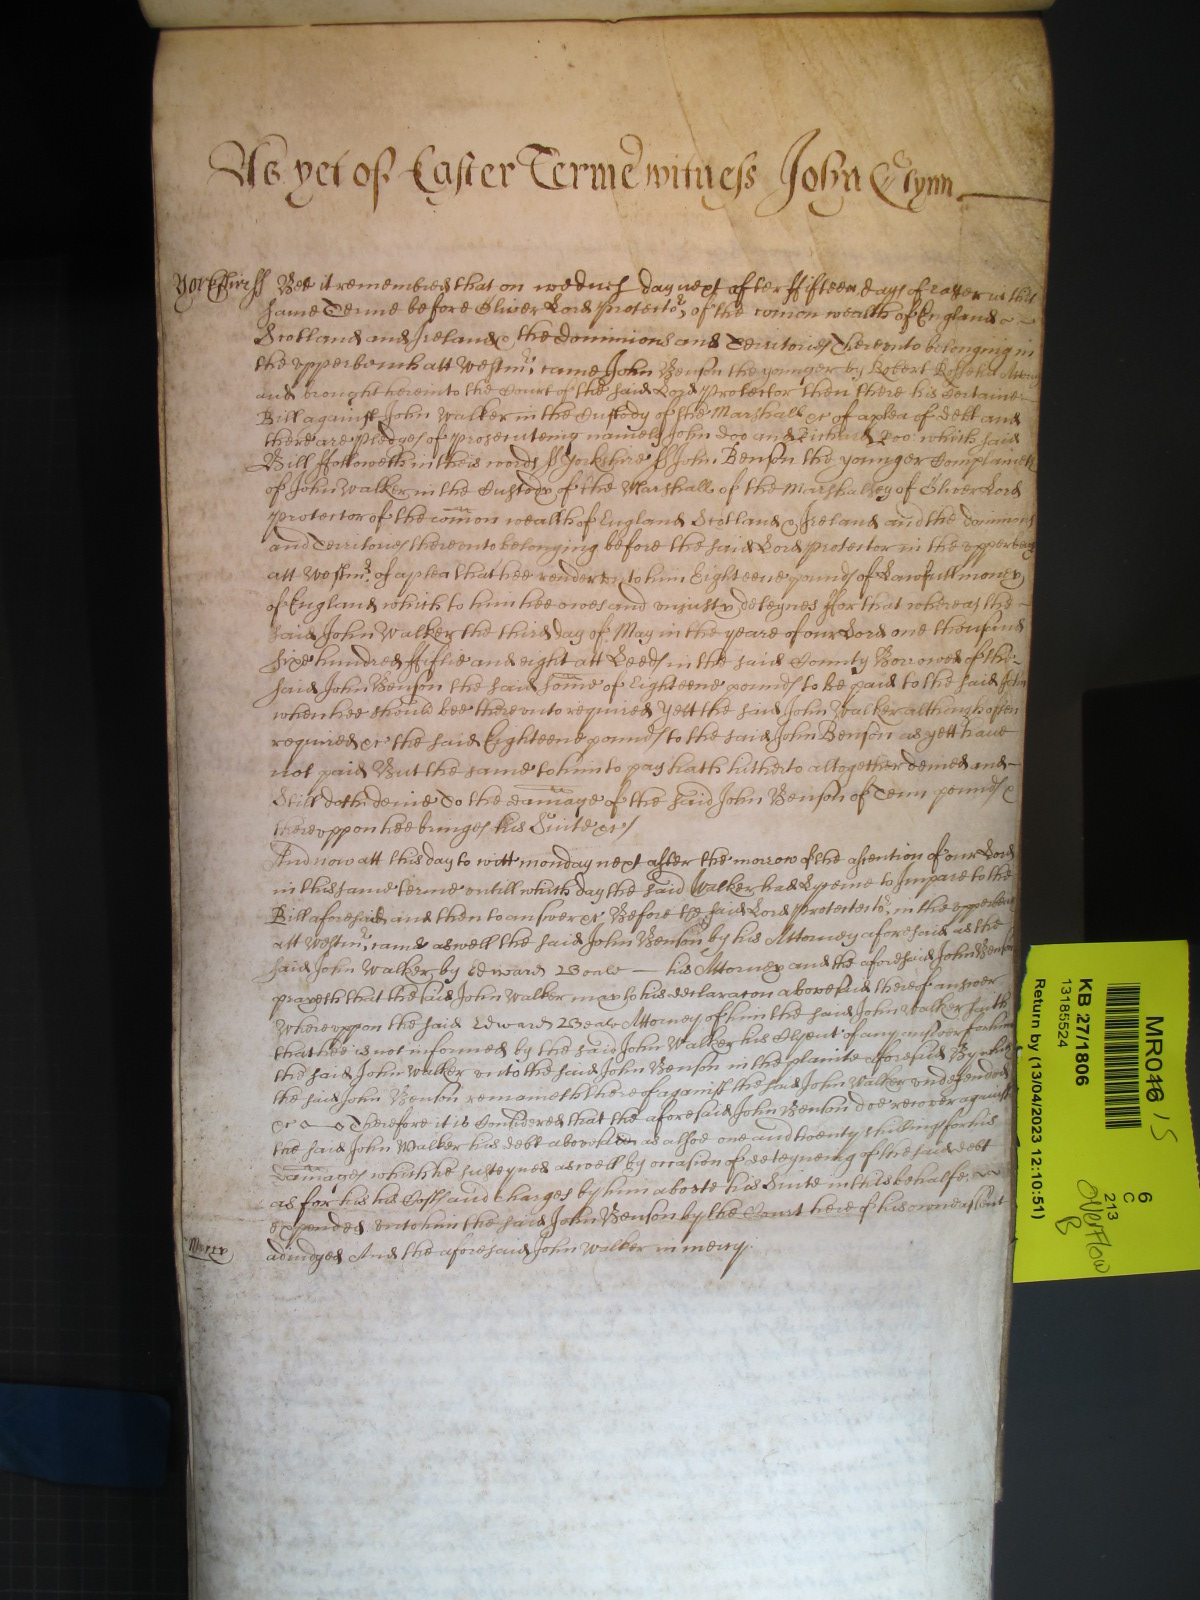 As yet of Easter Terme witness John Glynn
Yorkshire ss Bee it remembred that on wednes day next after ffifteen days of Easter in this
same Terme before Oliver Lord Protector of the comon wealth of England
Scotland and Ireland & the dominions and Territories Thereunto belonging in
the upper bench att Westmr came John Benson the younger by Robert his Attorney
and brought here into the Court of the said Lord Protector then there his Certaine
Bill against John Walker in the Custody of the Marshall &c of a plea of debt and
there are pledges of prosecuteing namely John Doo and Richard Roo which said
Bill ffolloweth in theis words ss Yorkshire ss John Benson the younger Complaineth
of John Walker in the Custody of the Marshall of the Marshalsey of Oliver Lord
protector of the comon wealth of England Scotland & Ireland and the dominions
and Territories thereunto belonging before the said Lord Protector in the upper bench
att Westmr of a plea that hee render unto him Eighteene pounds of Lawfull money
of England which to him hee owes and uniustly deteynes ffor that whereas the
said John Walker the third day of May in the yeare of our Lord one thousand
sixe hundred ffiftie and eight att Leeds in the said County Borrowed of the
said John Benson the said some of Eighteene pounds to be paid to the said John
when hee should bee thereunto required Yett the said John Walker although often
required &c the said Eighteene pounds to the said John Benson as yett have
not paid But the same to him to pay hath hitherto altogether denied and
Still doth denie To the damage of the said John Benson of Tenn pounds &
thereuppon hee bringes his Suite &c
And now att this day to witt monday next after the morrow of the Ascention of our Lord
in this same terme untill which day the said Walker had Lycence to Impare to the
Bill aforesaid and then to answer &c Before the said Lord Protector in the upper bench
att Westmr came aswell the said John Benson by his Attorney aforesaid as the
said John Walker by Edward Beale his Attorney and the aforesaid John Benson
prayeth that the said John Walker may to his declaracon abovesaid thereof answer
Whereuppon the said Edward Beale Attorney of him the said John Walker saith
that hee is not informed by the said John Walker his Clyent of any answer for him
the said John Walker unto the said John Benson in the plainte aforesaid By which
the said John Benson remaineth thereof against the said John Walker undefended
&c Therefore it is Considered that the aforesaid John Benson doe recover against
the said John Walker his debt abovesaid as alsoe one and twenty shillings for his
damages which he susteyned aswell by occasion of deteyneing of the said debt
as for his his Costs and charges by him aboute his Suite in this behalfe
expended unto him the said John Benson by the Court here of his owne assent
Mercy
adiudged And the aforesaid John Walker in mercy
MR046 / 15
KB 27/1806
13185524
Return by (13/04/2023 12:10:51)
6
C
213
Overflow
B